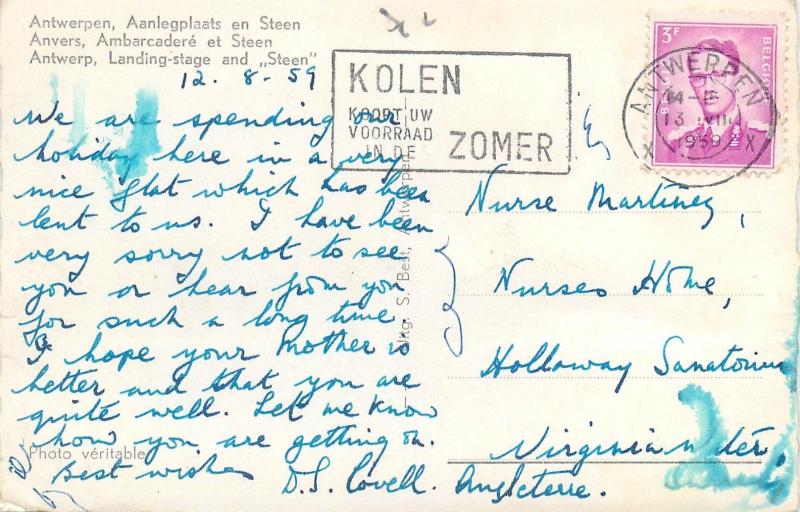 Antwerpen, Aanlegplaats en Steen
Anvers, Ambarcaderé et Steen
Antwerp, Landing-stage and „Steen”
12. 8. 59
We are spending our
holiday here in a very
nice flat which has been
lent to us. I have been
very sorry not to see
you or hear from you
for such a long time
I hope your Mother is
better and that you are
quite well. Let me know
how you are getting on.
Best wishes
D.S. Covell.
Photo véritable
Uitg. S. Best, Antwerpen
KOLEN
KOOPT UW
VOORRAAD
IN DE
ZOMER
3F
BELGIË
BELGIQUE
ANTWERPEN
13 VIII
1959
X X
Nurse Martinez,
Nurses Home,
Holloway Sanatorium
Virginia Water,
Angleterre.